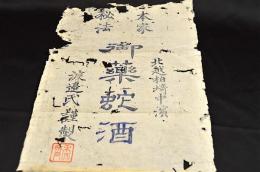 本家
秘法
北越柏崎中濱
御藥蛇酒
渡邊氏謹製